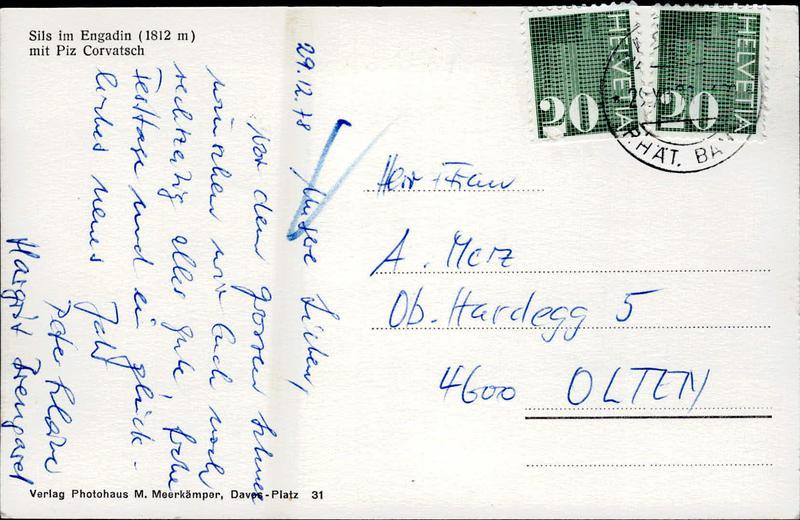 Sils im Engadin (1812 m)
mit Piz Corvatsch
29.12.78
Unsere Lieben,
Vor dem grossen Schnee
wünschen wir Euch noch
rechtzeitig alles Gute, frohe
Festtage und ein glück-
liches neues Jahr
Peter
Margrit
HELVETIA
20
HELVETIA
20
RHÄT. BA
Herr + Frau
A. Merz
Ob. Hardegg 5
4600 OLTEN
Verlag Photohaus M. Meerkämper, Davos-Platz 31